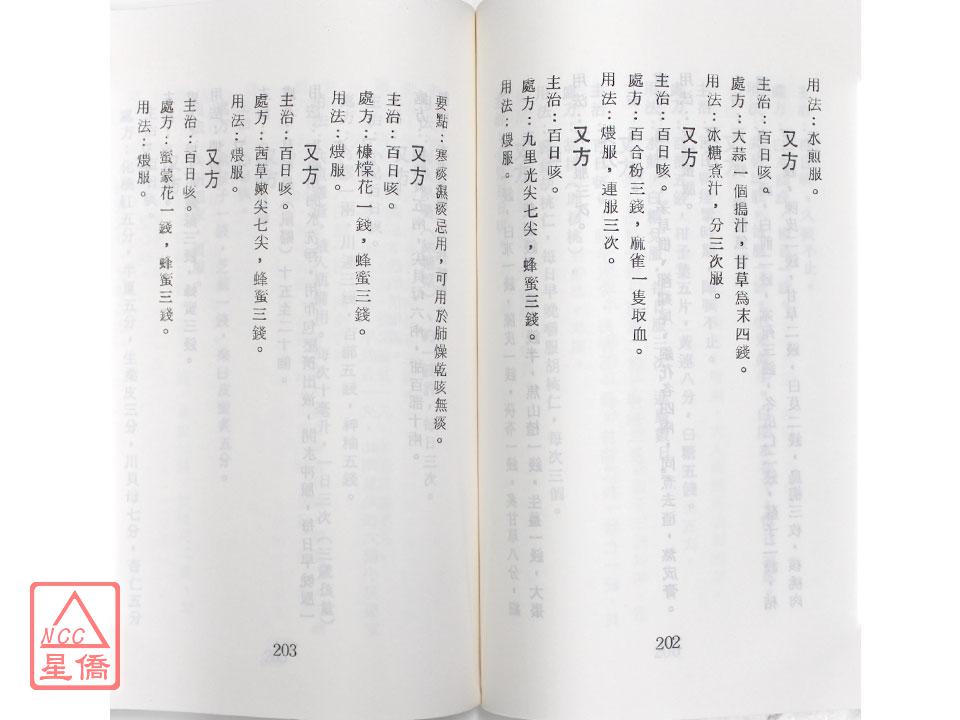 用法：水煎服。
又方
主治：百日咳。
處方：大蒜一個搗汁，甘草為末四錢。
用法：冰糖煮汁，分三次服。
又方
主治：百日咳。
處方：百合粉三錢，麻雀一隻取血。
用法：煨服，連服三次。
又方
主治：百日咳。
處方：九里光七尖，蜂蜜三錢。
用法：煨服。
202
要點：寒痰濕痰忌用，可用於肺燥乾咳無痰。
又方
主治：百日咳。
處方：槺檏花一錢，蜂蜜三錢。
用法：煨服。
又方
主治：百日咳。
處方：茜草嫩尖七尖，蜂蜜三錢。
用法：煨服。
又方
主治：百日咳。
處方：蜜蒙花一錢，蜂蜜三錢。
用法：煨服。
203
NCC
星僑